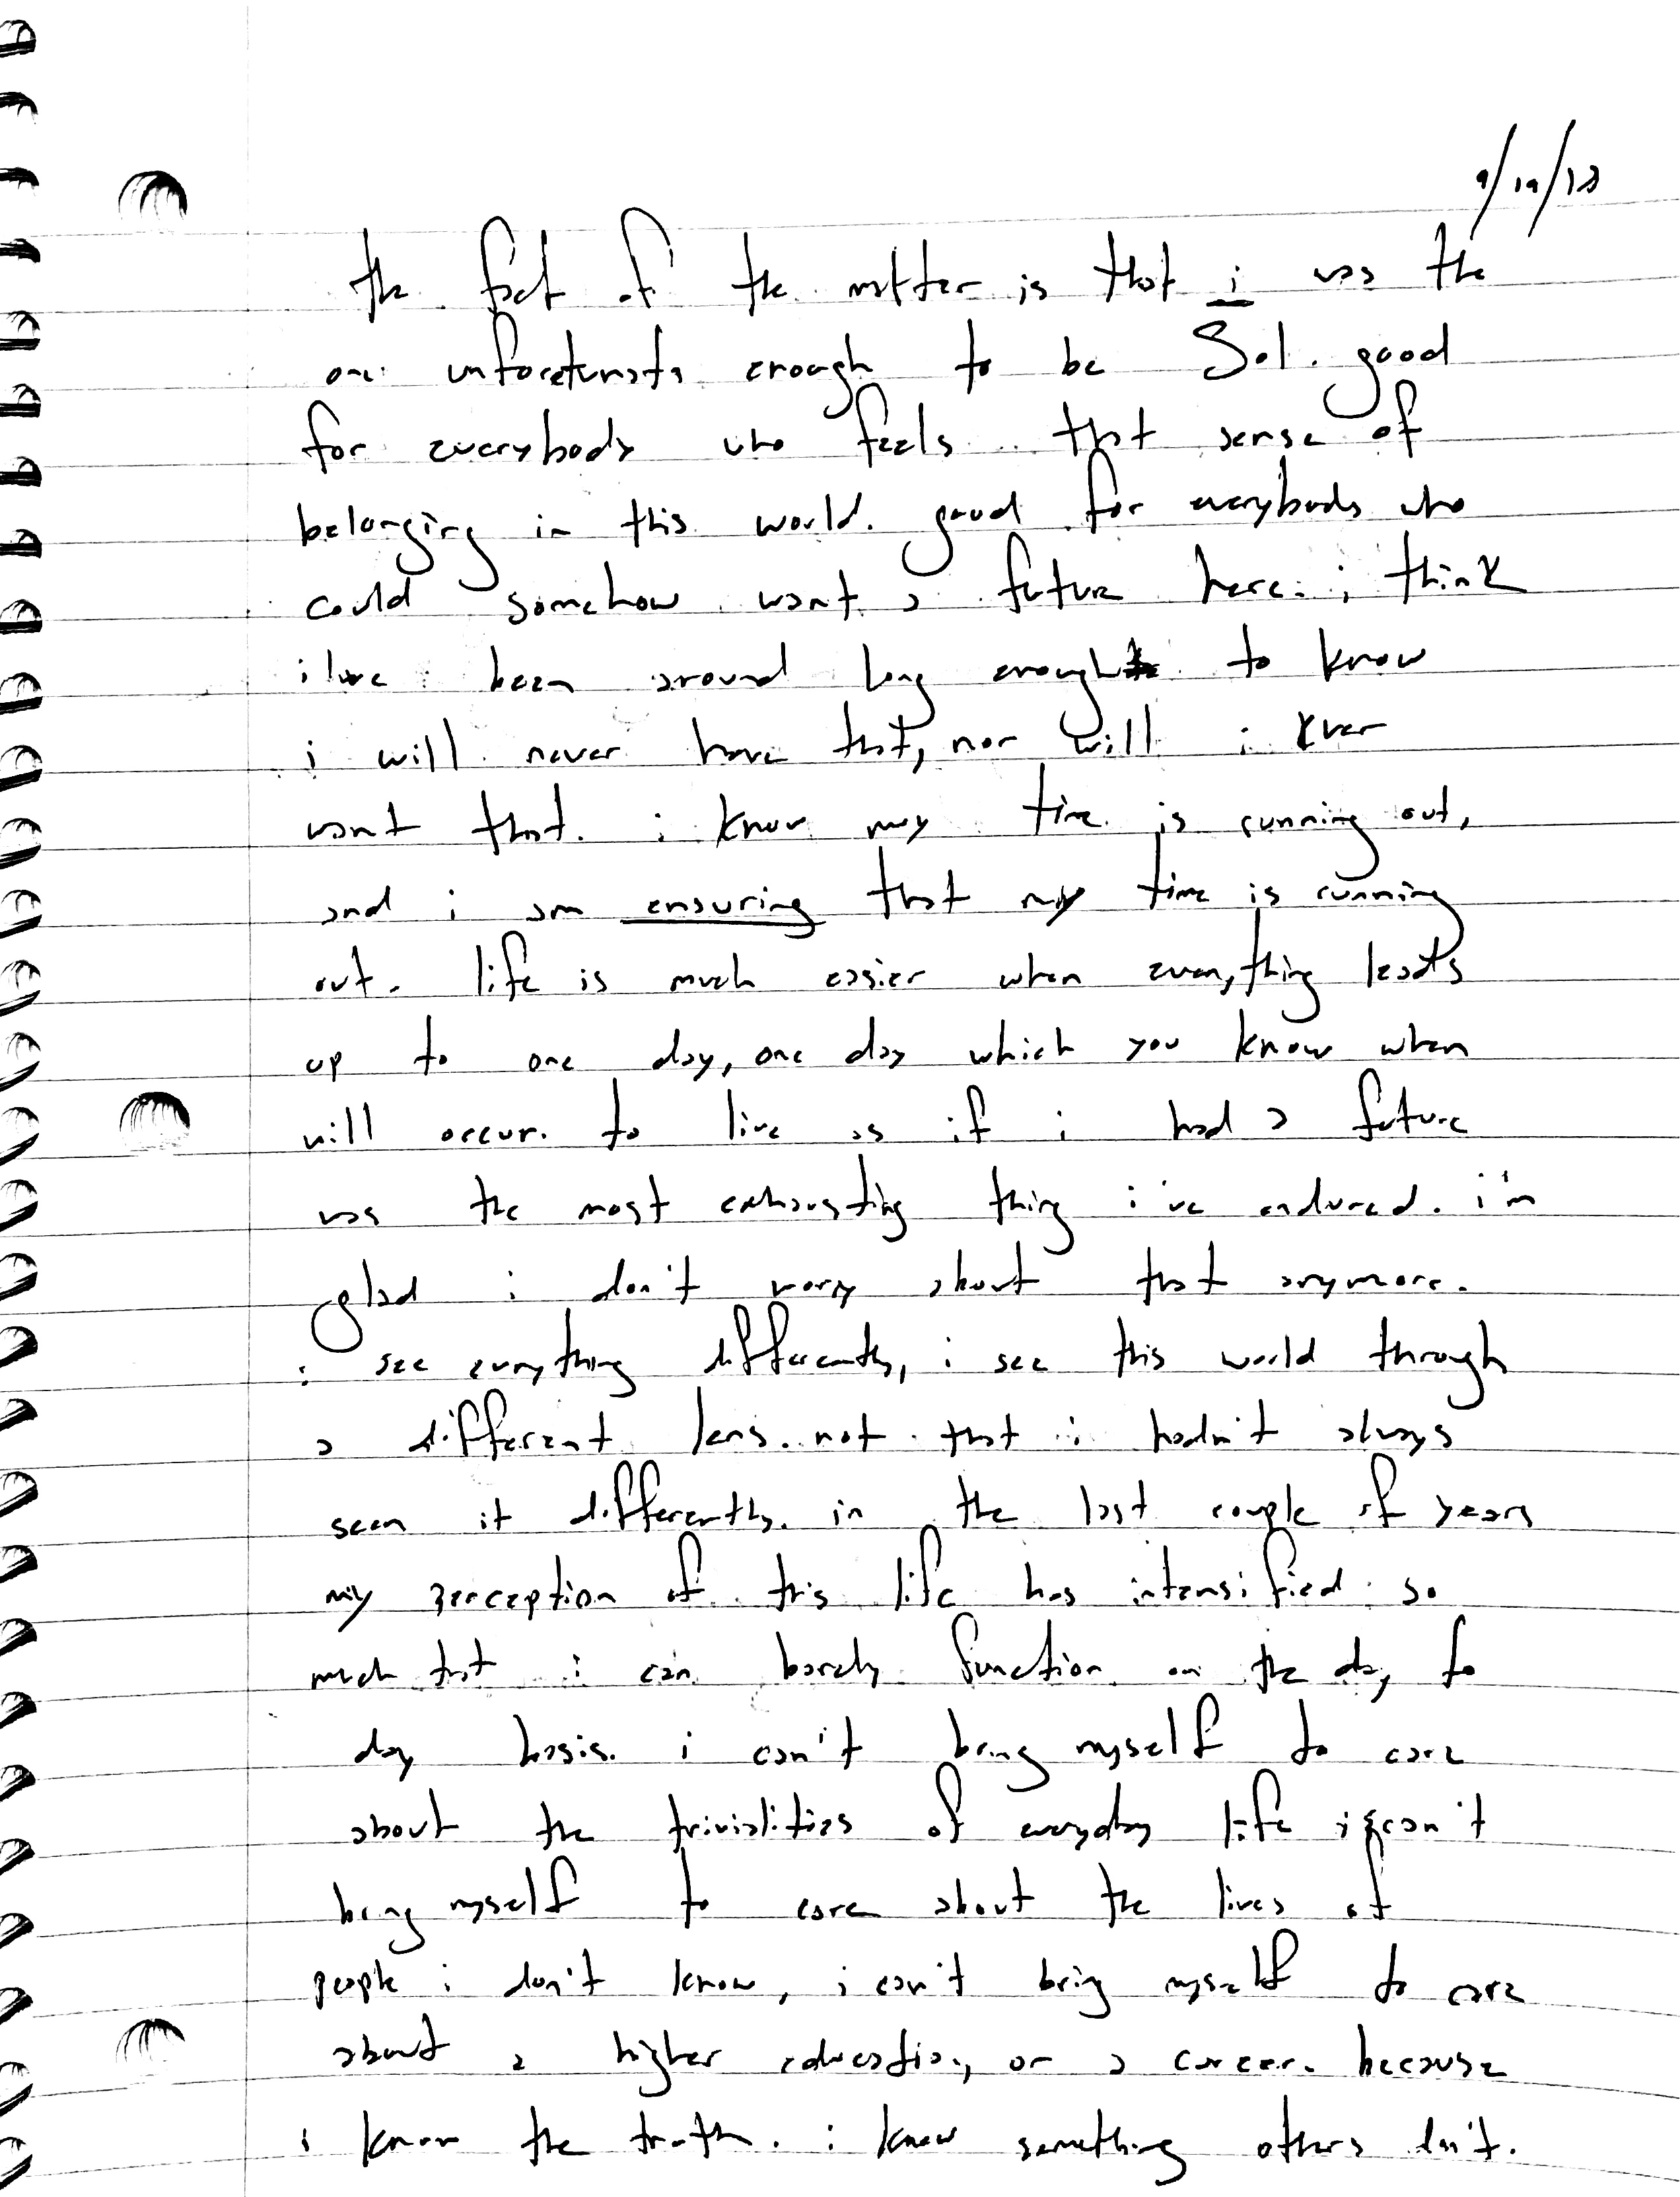 9/19/18
the fact of the matter is that i was the
one unforetunate enough to be Sol. good
for everybody who feels that sense of
belonging in this world. good for everybody who
could somehow want a future here. i think
i have been around long enough to know
i will never have that, nor will i ever
want that. i know my time is running out,
and i am ensuring that my time is running
out. life is much easier when everything leads
up to one day, one day which you know when
will occur. to live as if i had a future
was the most exhausting thing i've endured. i'm
glad i don't worry about that anymore.
i see everything differently, i see this world through
a different lens. not that i hadn't always
seen it differently. in the last couple of years
my perception of this life has intensified so
much that i can barely function on the day to
day basis. i can't bring myself to care
about the trivialities of everyday life i can't
bring myself to care about the lives of
people i don't know, i can't bring myself to care
about a higher education, or a career. because
i know the truth. i know something others don't.